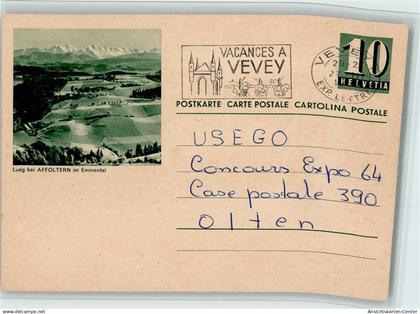 VACANCES A
VEVEY
VEVEY
EXP. LETTR.
10
HELVETIA
POSTKARTE CARTE POSTALE CARTOLINA POSTALE
Lueg bei AFFOLTERN im Emmental
USEGO
Concours Expo 64
Case postale 390
Olten
Ansichtskarten-Center